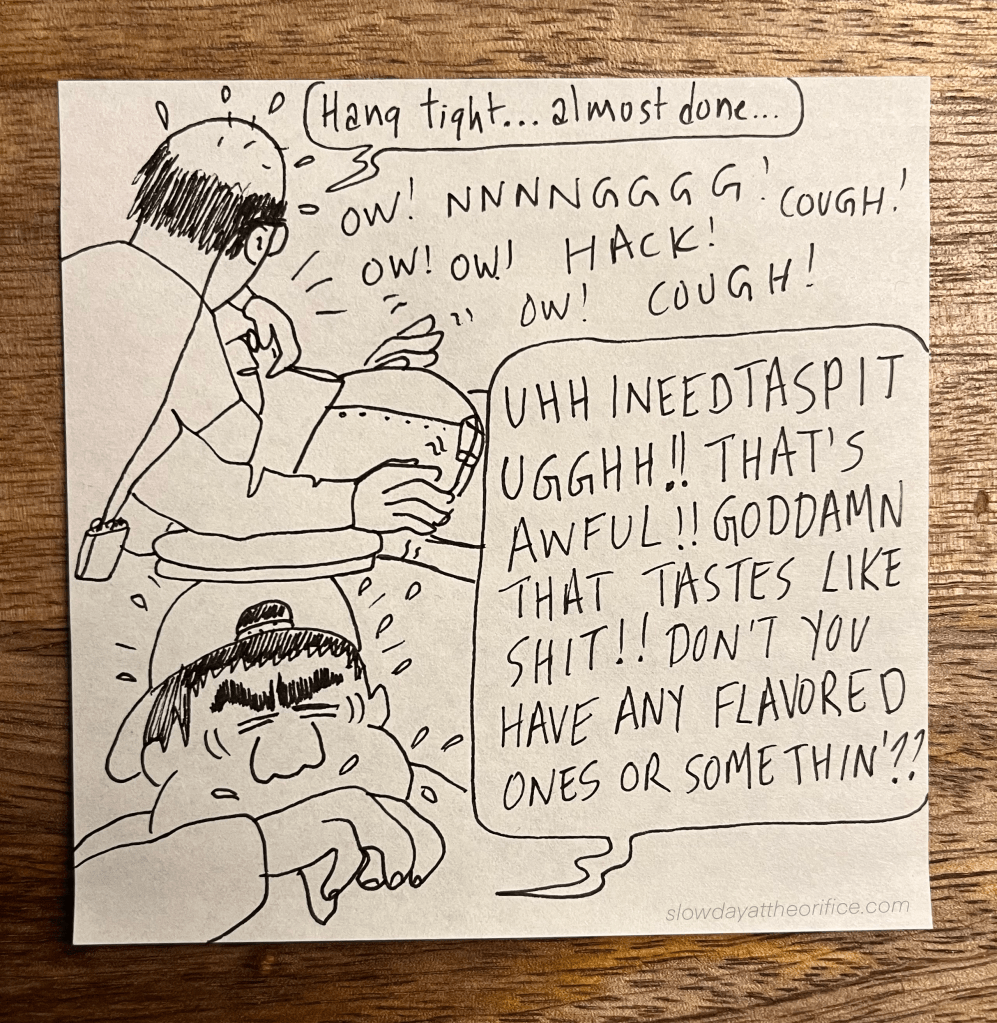 Hang tight... almost done...
OW! NNNNGGGGG! COUGH!
OW! OW! HACK!
OW! COUGH!
UHH INEEDTASPIT
UGGHH!! THAT'S
AWFUL!! GODDAMN
THAT TASTES LIKE
SHIT!! DON'T YOU
HAVE ANY FLAVORED
ONES OR SOMETHIN'??
slowdayattheorifice.com